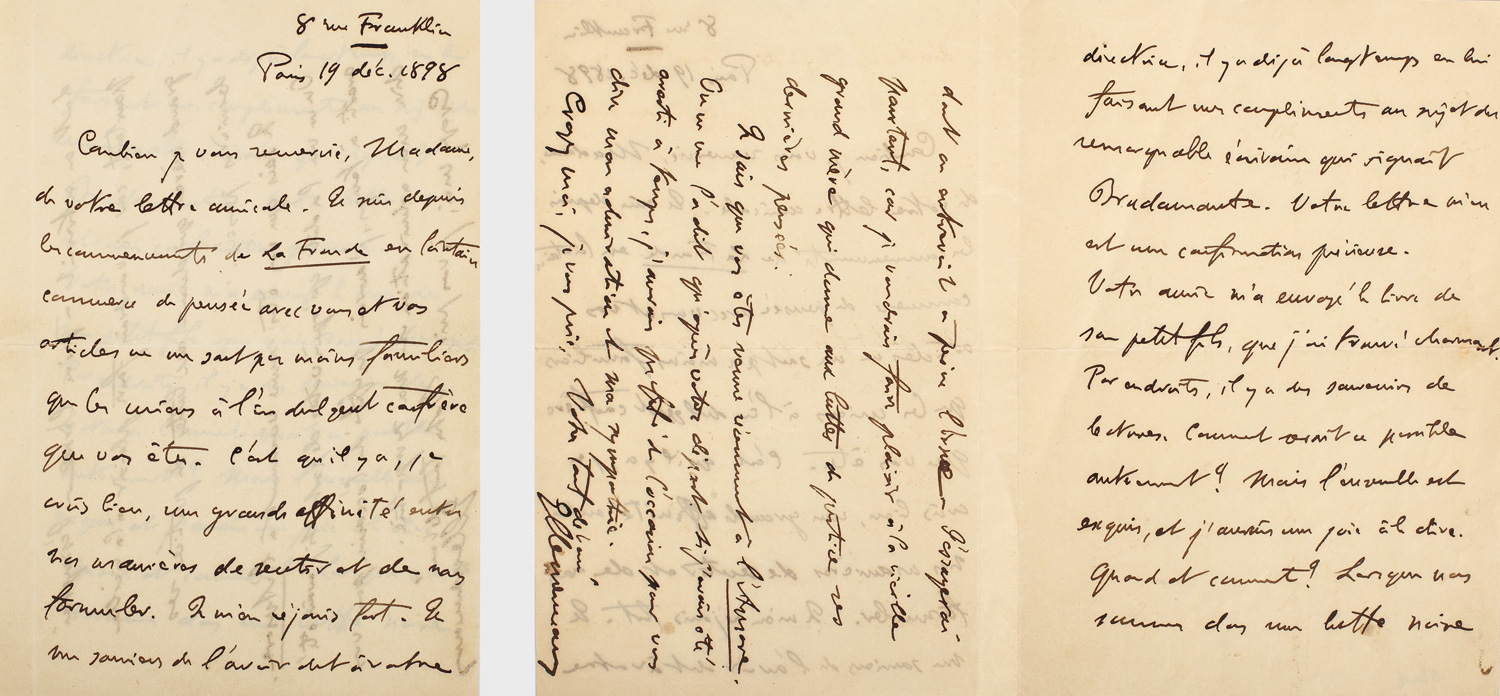 8 rue Franklin
Paris 19 déc. 1898
Combien je vous remercie, Madame,
de votre lettre amicale. Je suis depuis
les commencements de La Fronde en lointain
commerce de pensée avec vous et vos
articles ne me sont pas moins familiers
que les miens à l'indulgent confrère
que vous êtes. C'est qu'il y a, je
crois bien, une grande affinité entre
nos manières de sentir et de nous
formuler. Je m'en réjouis fort. Je
me souviens de l'avoir dit à votre
directrice, il y a déjà longtemps en lui
faisant mes compliments au sujet du
remarquable écrivain qui signait
Bradamante. Votre lettre m'en
est une confirmation précieuse.
Votre amie m'a envoyé le livre de
son petit fils, que j'ai trouvé charmant.
Par endroits, il y a des souvenirs de
lectures. Comment serait-ce possible
autrement? Mais l'ensemble est
exquis, et j'aurais une joie à le dire.
Quand et comment? Lorsque nous
sommes dans une lutte noire
dont on entrevoit à peine l'issue. J'essayerai
pourtant, car je voudrais faire plaisir à la vieille
grand mère qui donne aux luttes de justice ses
dernières pensées.
Je sais que vous êtes venue récemment à l'Aurore.
On ne me l'a dit qu'après votre départ. Si j'avais été
averti à temps, j'aurais profité de l'occasion pour vous
dire mon admiration et ma sympathie.
Croyez moi, je vous prie, Votre tout dévoué,
GClemenceau